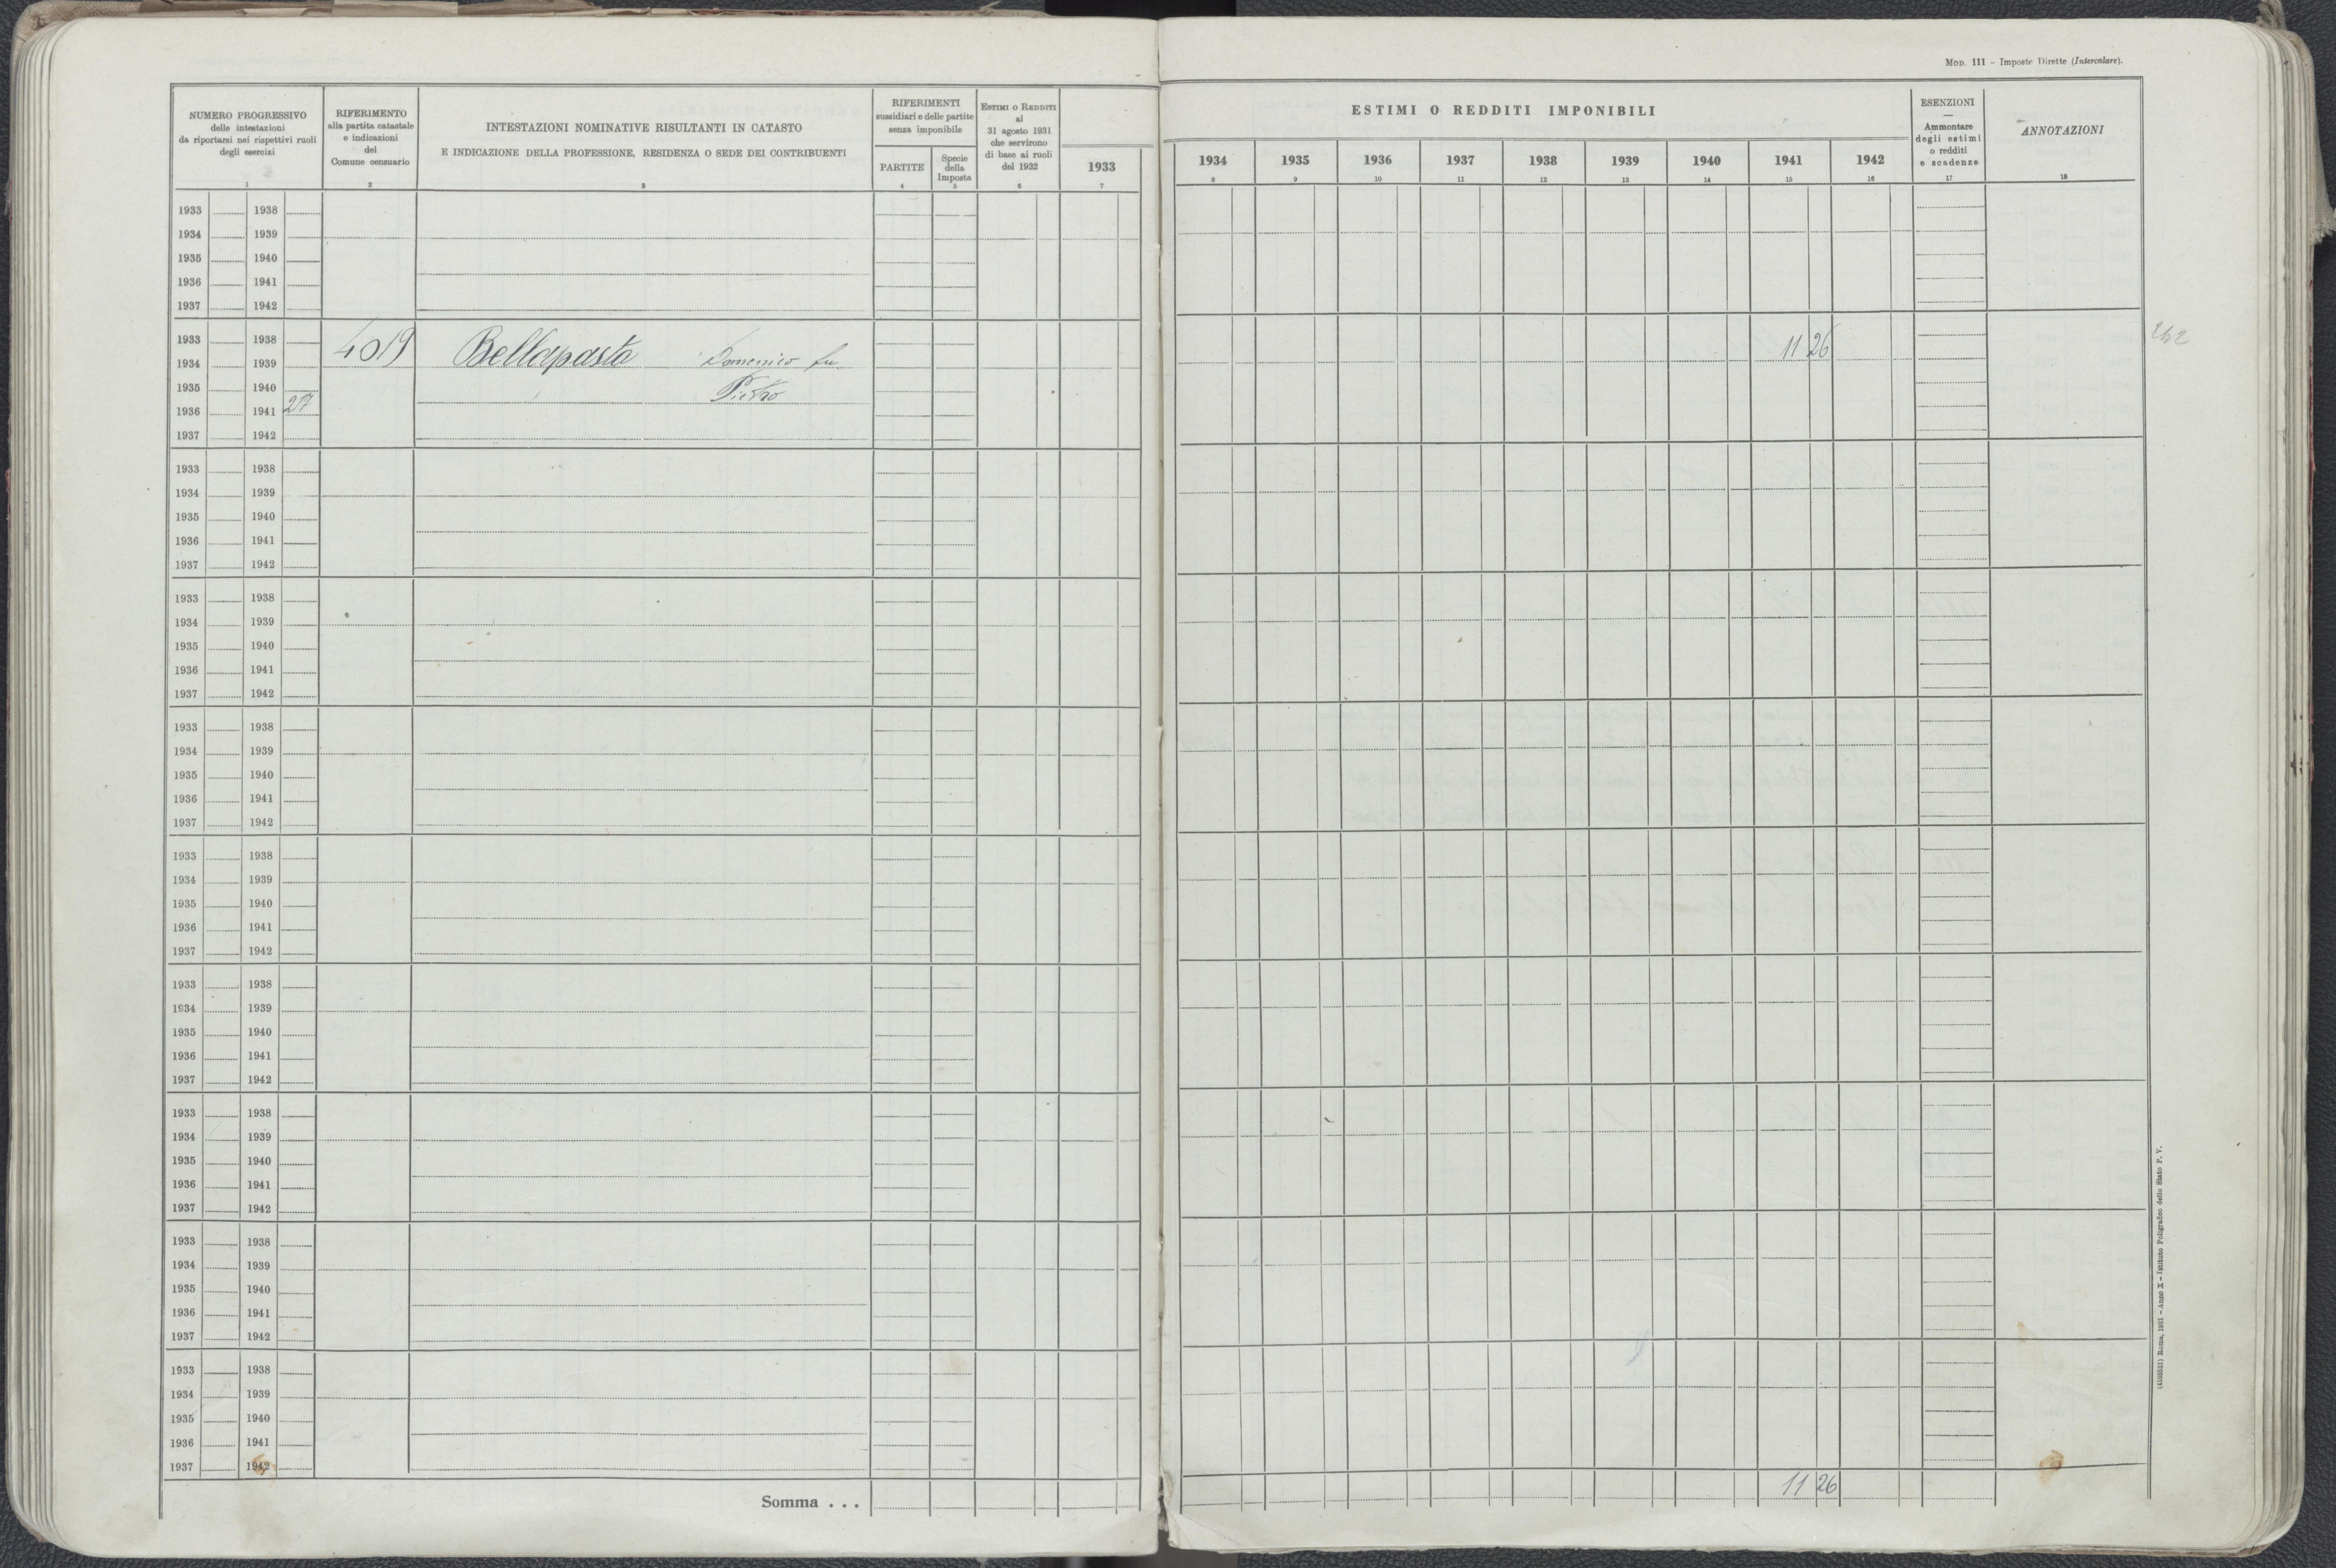 Mod. 111 - Imposte Dirette (Intercalare).
NUMERO PROGRESSIVO
delle intestazioni
da riportarsi nei rispettivi ruoli
degli esercizi
1
RIFERIMENTO
alla partita catastale
e indicazioni
del
Comune censuario
2
INTESTAZIONI NOMINATIVE RISULTANTI IN CATASTO
E INDICAZIONE DELLA PROFESSIONE, RESIDENZA O SEDE DEI CONTRIBUENTI
3
RIFERIMENTI
sussidiari e delle partite
senza imponibile
PARTITE
4
Specie
della
Imposta
5
ESTIMI O REDDITI
al
31 agosto 1931
che servirono
di base ai ruoli
del 1932
6
1933
7
ESTIMI O REDDITI IMPONIBILI
1934 1935 1936 1937 1938 1939 1940 1941 1942
8 9 10 11 12 13 14 15 16
ESENZIONI
—
Ammontare
degli estimi
o redditi
e scadenze
17
ANNOTAZIONI
18
1933 1938
1934 1939
1935 1940
1936 1941
1937 1942
1933 1938
4019 Bellapasta Domenico fu 11 26
1934 1939
1935 1940 Pietro
1936 1941 217
1937 1942
1933 1938
1934 1939
1935 1940
1936 1941
1937 1942
1933 1938
1934 1939
1935 1940
1936 1941
1937 1942
1933 1938
1934 1939
1935 1940
1936 1941
1937 1942
1933 1938
1934 1939
1935 1940
1936 1941
1937 1942
1933 1938
1934 1939
1935 1940
1936 1941
1937 1942
1933 1938
1934 1939
1935 1940
1936 1941
1937 1942
1933 1938
1934 1939
1935 1940
1936 1941
1937 1942
1933 1938
1934 1939
1935 1940
1936 1941
1937 1942
Somma . . . 11 26
Roma, 1931 - Anno X - Istituto Poligrafico dello Stato P. V.